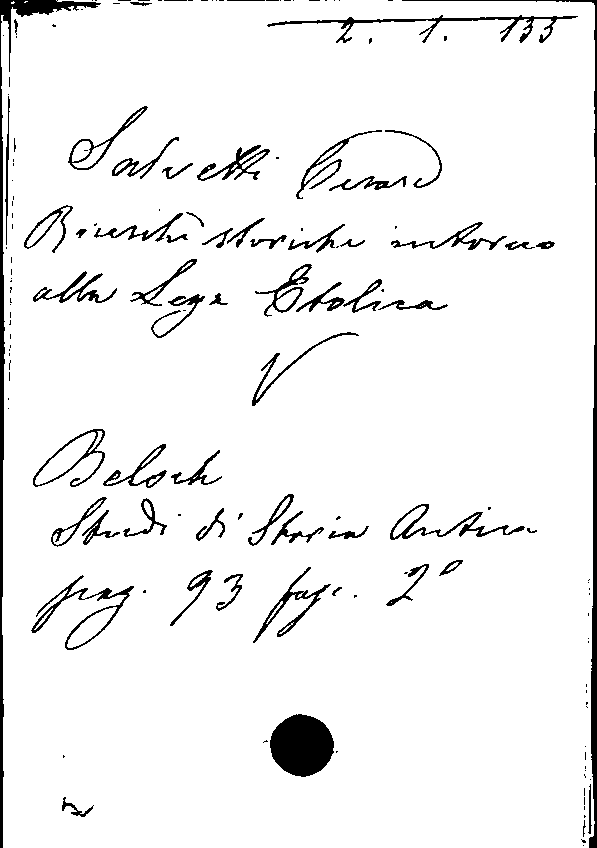 2. 1. 133
Salvetti Cesare
Ricerche storiche intorno
alla Lega Etolica
V
Beloch
Studi di Storia Antica
pag. 93 fasc. 2º